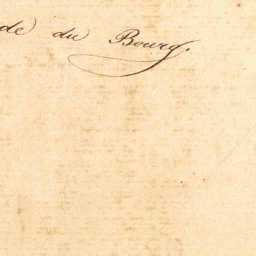 de du Bourg.